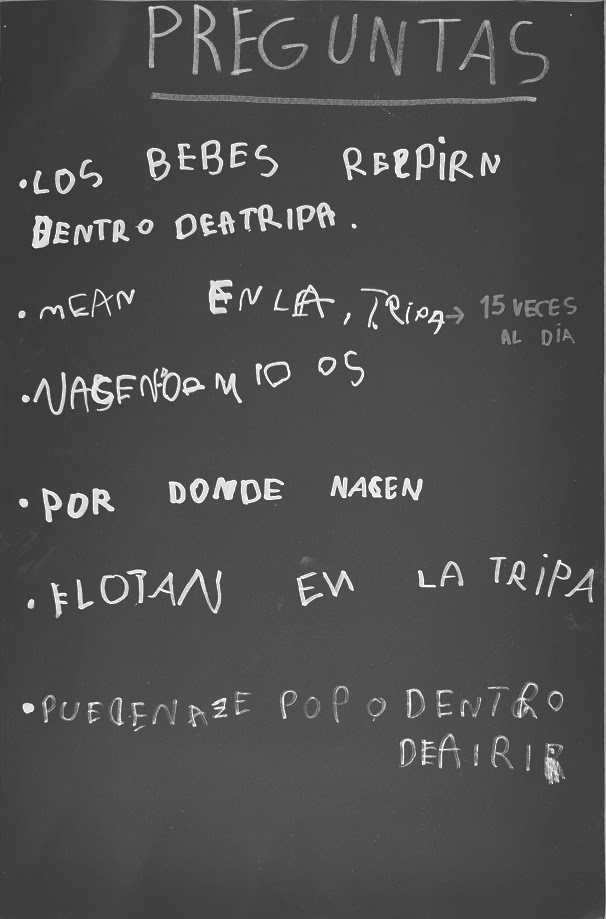 PREGUNTAS
•LOS BEBES RESPIRN
DENTRO DEATRIPA.
•MEAN EN LA, TRIPA→ 15 VECES
AL DÍA
•NACEN DORMIDOS
•POR DONDE NACEN
•FLOTAN EN LA TRIPA
•PUEDENAZE POPO DENTRO